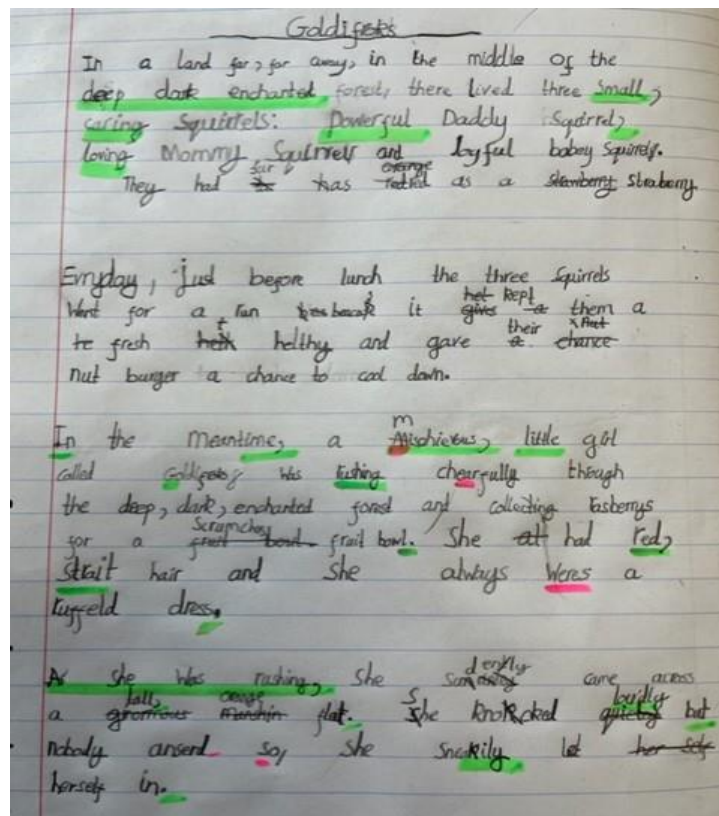 Goldifeets
In a land far, far away, in the middle of the
deep dark enchanted forest, there lived three small,
caring Squirrels: Powerful Daddy Squirrel,
loving Mommy Squirrels and Joyful babey Squirrels.
They had fur has orange as a strawberry Straberry
Erryday, just before lunch the three Squirrels
Went for a run it kept them a
fresh helthy and gave their
nut burger a chance to cool down.
In the meantime, a mischievous, little girl
called Goldifeets, was rushing chearfully though
the deep, dark, enchanted forest and collecting rasberrys
for a Scrumchey fruit bowl. frait bowl. She had red,
strait hair and She always Weres a
ruffeld dress.
As she was rushing, She came across
a tall, orange flat. She knokcked loudly but
nobody anserd so, she sneakily let her self
herself in.